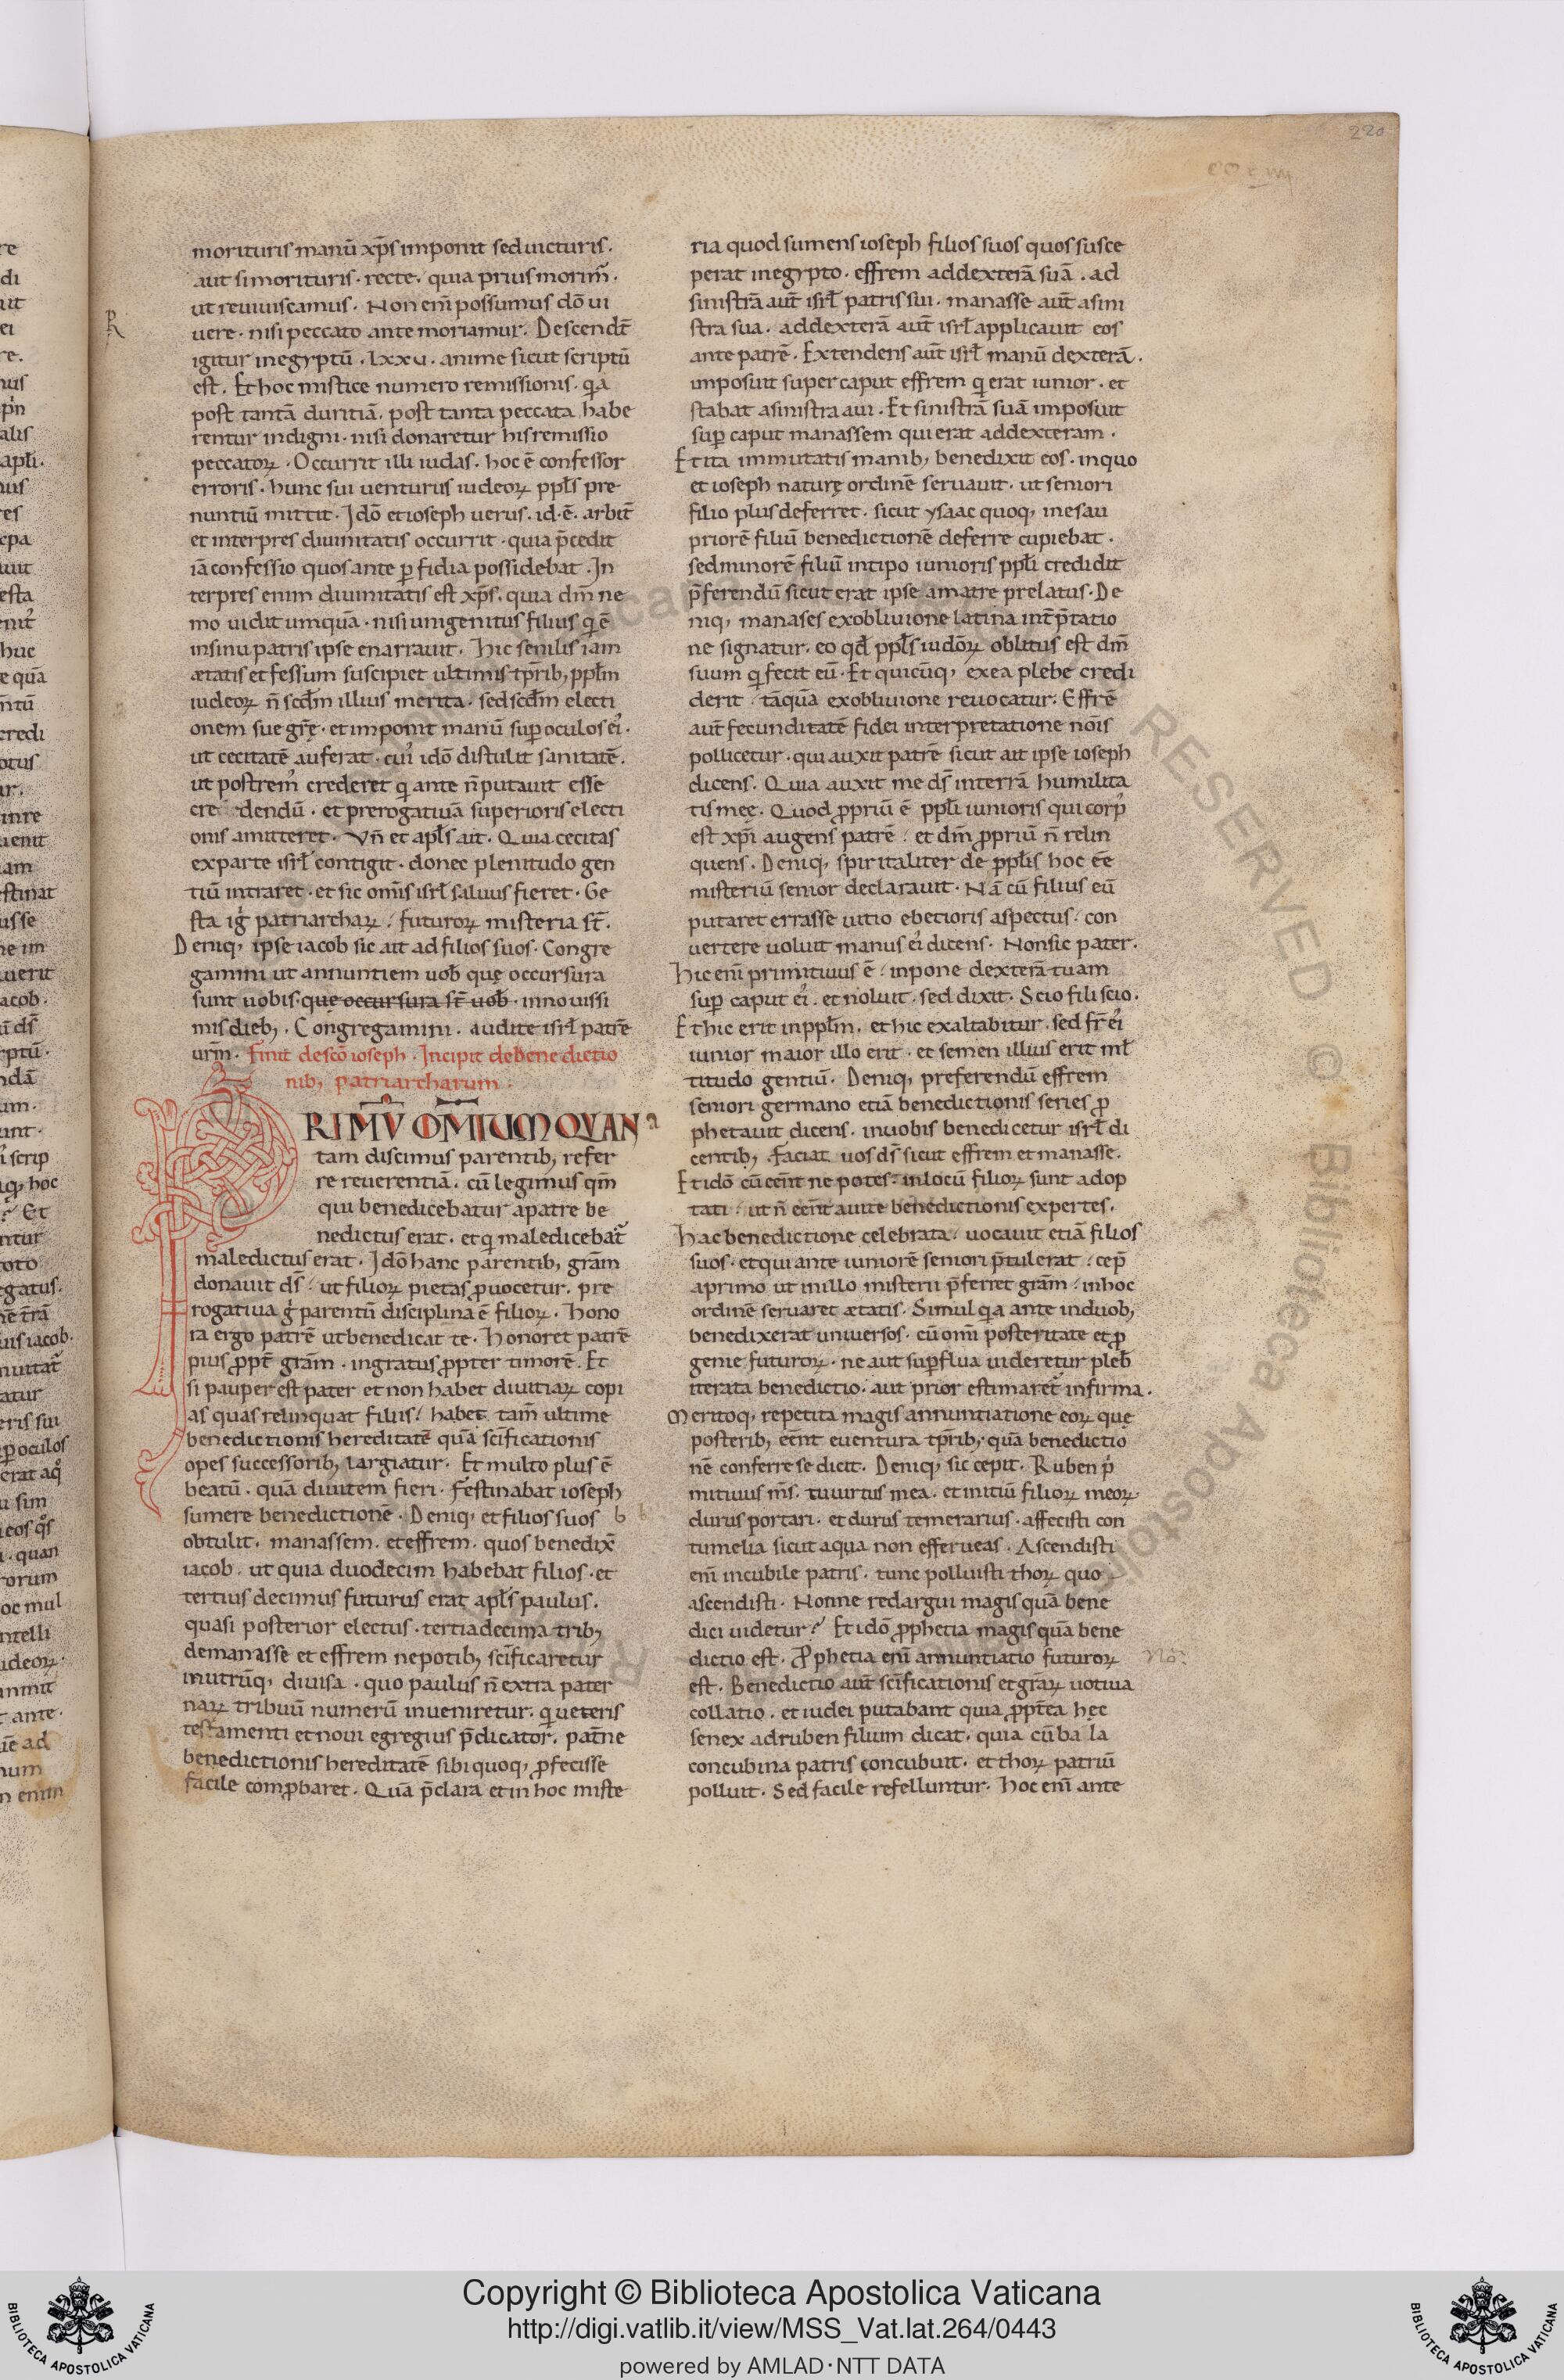 220
morituris manū xp̄s imponit sed uicturis.
aut si morituris. recte. quia prius morim᷑.
ut reuiuiscamus. Non em̄ possumus dō ui
uere. nisi peccato ante moriamur. Descendt̄
igitur in egyptū. lxxu. anime sicut scriptū
est. Et hoc mistice numero remissionis. qa
post tantā duritiā. post tanta peccata habe
rentur indigni. nisi donaretur his remissio
peccatoꝝ. Occurrit illi iudas. hoc ē confessor
erroris. hunc sui uenturus iudeoꝝ ppl̄s pre
nuntiū mittit. Idō et ioseph uerus. id. ē. arbit̄
et interpres diuinitatis occurrit. quia p̄cedit
iā confessio quos ante ꝑfidia possidebat. In
terpres enim diuinitatis est xp̄s. quia dm̄ ne
mo uidit umquā. nisi unigenitus filius q ē
in sinu patris ipse enarrauit. Hic senilis iam
ætatis et fessum suscipiet ultimis tp̄rib; ppl̄m
iudeoꝝ n̄ scd̄m illius merita. sed scd̄m electi
onem sue gr̄ę. et imponit manū sup oculos ei᾽.
ut cecitatē auferat. cui᾽ idō distulit sanitatē.
ut postrem᾽ crederet q ante n̄ putauit esse
cre dendū. et prerogatiuā superioris electi
onis amitteret. Vn̄ et apl̄s ait. Quia cecitas
ex parte isrl̄ contigit. donec plenitudo gen
tiū intraret. et sic omīs isrl̄ saluus fieret. Ge
sta ig patriarchaꝝ. futuroꝝ misteria st̄.
Deniq; ipse iacob sic ait ad filios suos. Congre
gamini ut annuntiem uob̄ quę occursura
sunt uobis. quę occursura st̄ uob̄. in nouissi
mis dieb;. Congregamini. audite isrl̄ patrē
urm̄. Finit de scō ioseph. Incipit de benedictio
nib; patriarcharum.
PRIMV̄ OM̄IUM QUANa
tam discimus parentib; refer
re reuerentiā. cū legimus qm̄
qui benedicebatur a patre be
nedictus erat. et q maledicebat᷑
maledictus erat. Idō hanc parentib; grām
donauit ds̄. ut filioꝝ pietas ꝓuocetur. pre
rogatiua g parentū disciplina ē filioꝝ. Hono
ra ergo patrē ut benedicat te. Honoret patrē
pius ꝓpt̄ grām. ingratus ꝓpter timorē. Et
si pauper est pater et non habet diuitiaꝝ copi
as quas relinquat filiis. habet tam̄ ultime
benedictionis hereditatē quā scīficationis
opes successorib; largiatur. Et multo plus ē
beatū. quā diuitem fieri. Festinabat ioseph
sumere benedictionē. Deniq; et filios suos b
obtulit. manassem. et effrem. quos benedix̄
iacob. ut quia duodecim habebat filios. et
tertius decimus futurus erat apl̄s paulus.
quasi posterior electus. tertiadecima trib;
de manasse et effrem nepotib; scīficaretur
in utrūq; diuisa. quo paulus n̄ extra pater
naꝝ tribuū numerū inueniretur. q ueteris
testamenti et noui egregius p̄dicator. pat̄ne
benedictionis hereditatē sibi quoq; ꝓfecisse
facile comꝓbaret. Quā p̄clara et in hoc miste
ria quod sumens ioseph filios suos quos susce
perat in egypto. effrem ad dexterā suā. ad
sinistrā aut̄ isrl̄ patris sui. manasse aut̄ a sini
stra sua. ad dexterā aut̄ isrl̄ applicauit eos
ante patrē. Extendens aut̄ isrl̄ manū dexterā.
imposuit super caput effrem q erat iunior. et
stabat a sinistra aui. Et sinistrā suā imposuit
sup caput manassem qui erat ad dexteram.
Et ita immutatis manib; benedixit eos. in quo
et ioseph naturę ordinē seruauit. ut seniori
filio plus deferret. sicut ysaac quoq; in esau
priorē filiū benedictionē deferre cupiebat.
sed minorē filiū in tipo iunioris ppl̄i credidit
p̄ferendū sicut erat ipse a matre prelatus. De
niq; manases ex obliuione latina int̄p̄tatio
ne signatur. eo qd̄ ppl̄s iudōꝝ oblitus est dm̄
suum q fecit eū. Et quicūq; ex ea plebe credi
derit. tāquā ex obliuione reuocatur. Effrē
aut̄ fecunditatē fidei interpretatione nōis
pollicetur. qui auxit patrē sicut ait ipse ioseph
dicens. Quia auxit me ds̄ in terrā humilita
tis meę. Quod ꝓpriū ē ppl̄i iunioris qui corp᾽
est xp̄i augens patrē. et dm̄ ꝓpriū n̄ relin
quens. Deniq; spiritaliter de ppl̄is hoc eē
misteriū senior declarauit. Nā cū filius eū
putaret errasse uitio ebetioris aspectus. con
uertere uoluit manus ei᾽ dicens. Non sic pater.
Hic em̄ primitiuus ē. inpone dexterā tuam
sup caput ei᾽. et noluit. sed dixit. Scio fili scio.
Et hic erit in ppl̄m. et hic exaltabitur. sed fr̄ ei᾽
iunior maior illo erit. et semen illius erit ml̄
titudo gentiū. Deniq; preferendū effrem
seniori germano etiā benedictionis series ꝓ
phetauit dicens. in uobis benedicetur isrl̄ di
centib; faciat uos ds̄ sicut effrem et manasse.
Et idō cū eēnt nepotes. in locū filioꝝ sunt adop
tati. ut n̄ eēnt auite benedictionis expertes.
Hac benedictione celebrata. uocauit etiā filios
suos. et qui ante iuniorē seniori p̄tulerat. cep̄
a primo ut in illo misterii p̄ferret grām. in hoc
ordinē seruaret ætatis. Simul qa ante in duob;
benedixerat uniuersos. cū omī posteritate et ꝓ
genie futuroꝝ. ne aut suꝑflua uideretur pleb̄
iterata benedictio. aut prior estimaret᷑ infirma.
Meritoq; repetita magis annuntiatione eoꝝ quę
posterib; eēnt euentura tp̄rib; quā benedictio
nē conferre se dicit. Deniq; sic cepit. Ruben p
mitiuus ms̄. tu uirtus mea. et initiū filioꝝ meoꝝ.
durus portari. et durus temerarius. affecisti con
tumelia sicut aqua non efferueas. Ascendisti
em̄ in cubile patris. tunc polluisti thoꝝ quo
ascendisti. Nonne redargui magis quā bene
dici uidetur? Et idō ꝓphetia magis quā bene
dictio est. Ꝓphetia em̄ annuntiatio futuroꝝ
est. Benedictio aut̄ scīficationis et grāꝝ uotiua
collatio. et iudei putabant quia ꝓpt̄ea hęc
senex ad ruben filium dicat. quia cū ba la
concubina patris concubuit. et thoꝝ patriū
polluit. Sed facile refelluntur. Hoc em̄ ante
Copyright © Biblioteca Apostolica Vaticana
http://digi.vatlib.it/view/MSS_Vat.lat.264/0443
powered by AMLAD·NTT DATA
BIBLIOTECA APOSTOLICA VATICANA
BIBLIOTECA APOSTOLICA VATICANA